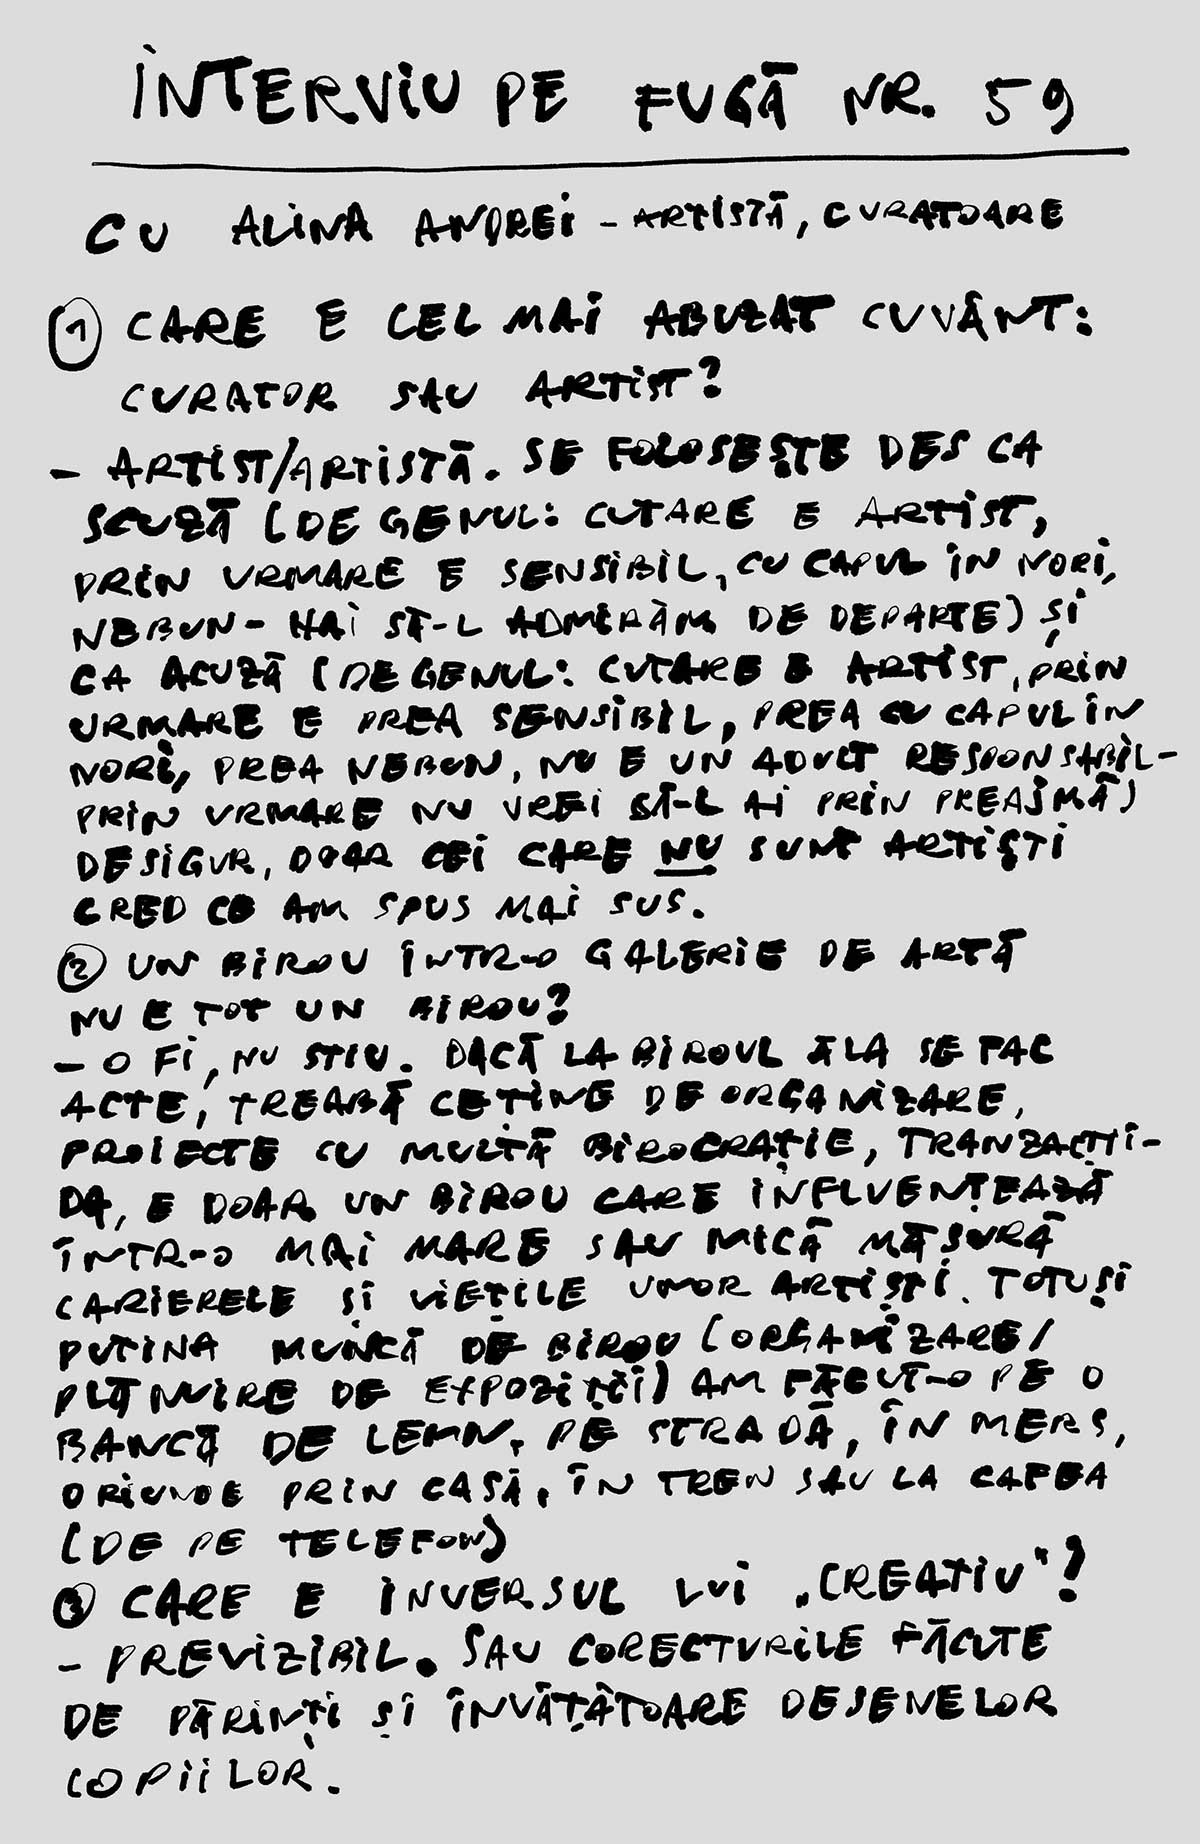 INTERVIU PE FUGĂ NR. 59
CU ALINA ANDREI - ARTISTĂ, CURATOARE
① CARE E CEL MAI ABUZAT CUVÂNT:
CURATOR SAU ARTIST?
- ARTIST/ARTISTĂ. SE FOLOSEȘTE DES CA
SCUZĂ (DE GENUL: CUTARE E ARTIST,
PRIN URMARE E SENSIBIL, CU CAPUL ÎN NORI,
NEBUN - HAI SĂ-L ADMIRĂM DE DEPARTE) ȘI
CA ACUZĂ (DE GENUL: CUTARE E ARTIST, PRIN
URMARE E PREA SENSIBIL, PREA CU CAPUL ÎN
NORI, PREA NEBUN, NU E UN ADULT RESPONSABIL -
PRIN URMARE NU VREI SĂ-L AI PRIN PREAJMĂ)
DESIGUR, DOAR CEI CARE NU SUNT ARTIȘTI
CRED CE AM SPUS MAI SUS.
② UN BIROU ÎNTR-O GALERIE DE ARTĂ
NU E TOT UN BIROU?
- O FI, NU STIU. DACĂ LA BIROUL ĂLA SE FAC
ACTE, TREABĂ CE ȚINE DE ORGANIZARE,
PROIECTE CU MULTĂ BIROCRAȚIE, TRANZACȚII -
DA, E DOAR UN BIROU CARE INFLUENȚEAZĂ
ÎNTR-O MAI MARE SAU MICĂ MĂSURĂ
CARIERELE ȘI VIEȚILE UNOR ARTIȘTI. TOTUȘI
PUȚINA MUNCĂ DE BIROU (ORGANIZARE/
PLĂNUIRE DE EXPOZIȚII) AM FĂCUT-O PE O
BANCĂ DE LEMN, PE STRADĂ, ÎN MERS,
ORIUNDE PRIN CASĂ, ÎN TREN SAU LA CAFEA
(DE PE TELEFON)
③ CARE E INVERSUL LUI „CREATIV"?
- PREVIZIBIL. SAU CORECTURILE FĂCUTE
DE PĂRINȚI ȘI ÎNVĂȚĂTOARE DESENELOR
COPIILOR.